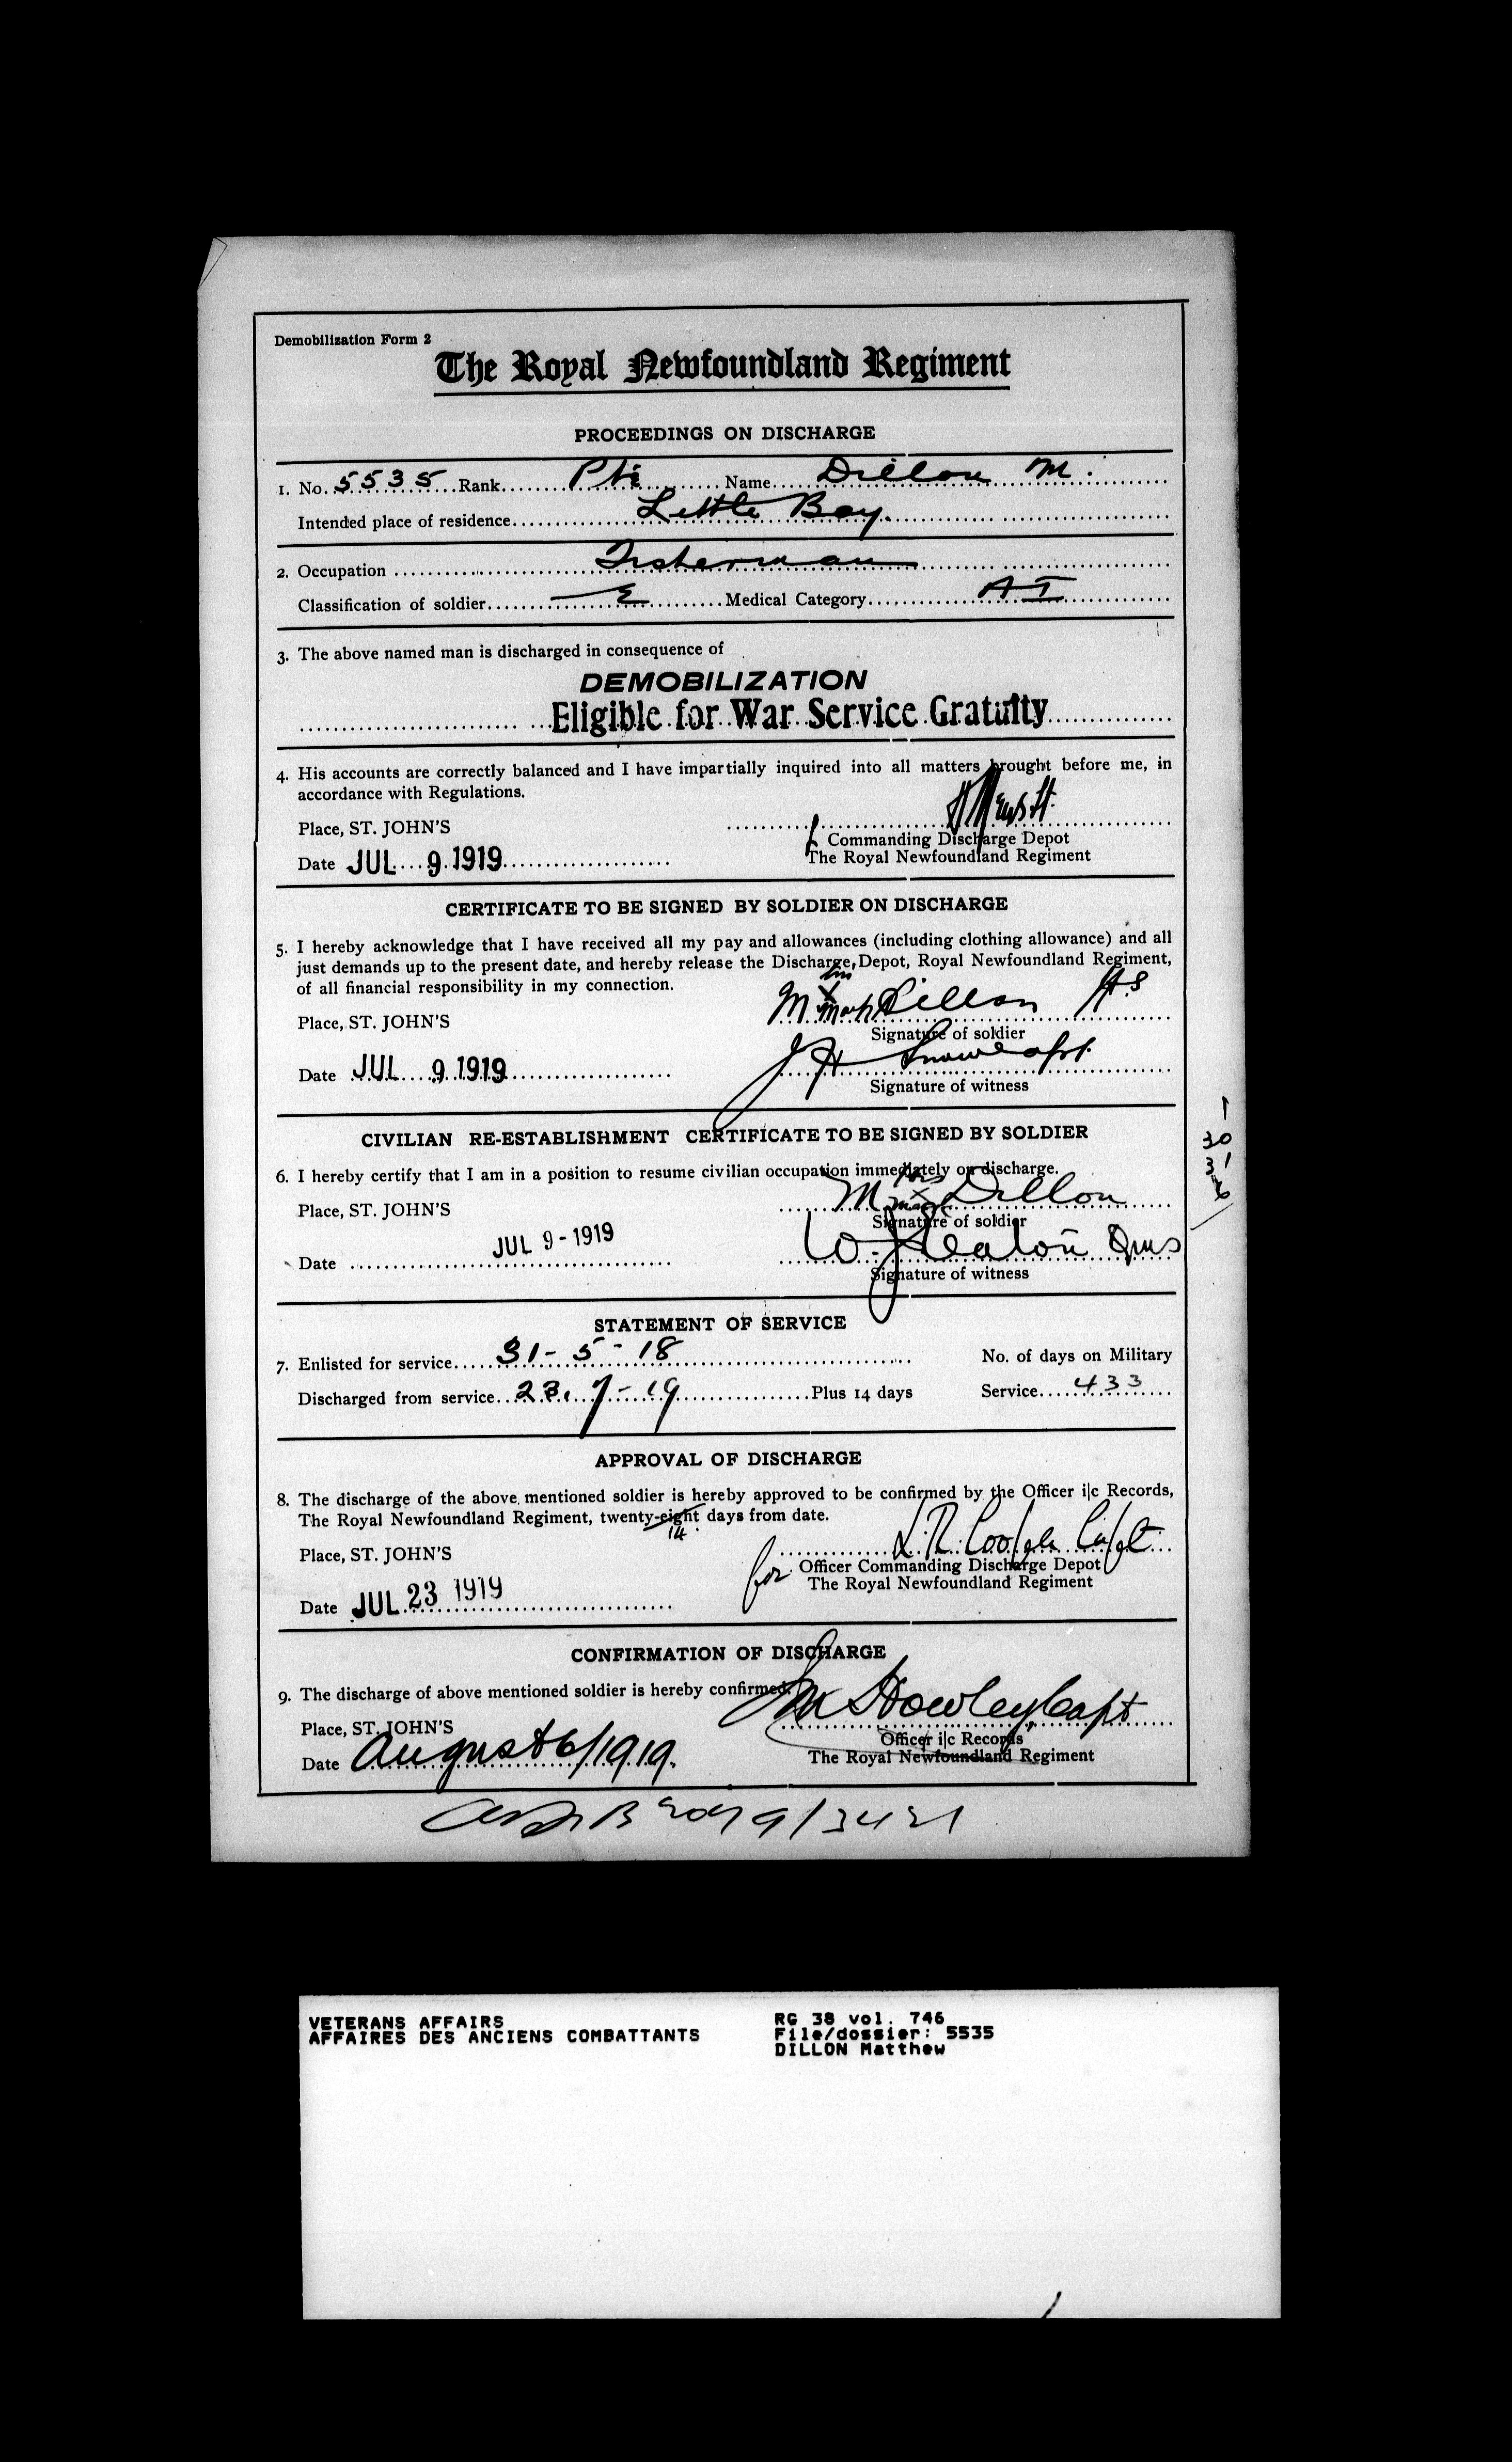 Demobilization Form 2
The Royal Newfoundland Regiment
PROCEEDINGS ON DISCHARGE
1. No. 5535 Rank Pte Name Dillon M.
Intended place of residence Little Bay.
2. Occupation Fisherman
Classification of soldier E Medical Category A I
3. The above named man is discharged in consequence of
DEMOBILIZATION
Eligible for War Service Gratuity
4. His accounts are correctly balanced and I have impartially inquired into all matters brought before me, in
accordance with Regulations.
Place, ST. JOHN'S
Commanding Discharge Depot
Date JUL 9 1919 The Royal Newfoundland Regiment
CERTIFICATE TO BE SIGNED BY SOLDIER ON DISCHARGE
5. I hereby acknowledge that I have received all my pay and allowances (including clothing allowance) and all
just demands up to the present date, and hereby release the Discharge Depot, Royal Newfoundland Regiment,
of all financial responsibility in my connection.
his
M X Dillon
mark
Place, ST. JOHN'S
Signature of soldier
J H
Date JUL 9 1919
Signature of witness
CIVILIAN RE-ESTABLISHMENT CERTIFICATE TO BE SIGNED BY SOLDIER
6. I hereby certify that I am in a position to resume civilian occupation immediately on discharge.
his
Place, ST. JOHN'S M X Dillon
mark
Signature of soldier
Date JUL 9-1919 W. J. Eaton Qms
Signature of witness
STATEMENT OF SERVICE
7. Enlisted for service 31-5-18 No. of days on Military
Discharged from service 23.7-19 Plus 14 days Service 433
APPROVAL OF DISCHARGE
8. The discharge of the above mentioned soldier is hereby approved to be confirmed by the Officer i|c Records,
The Royal Newfoundland Regiment, twenty-eight days from date.
14
Place, ST. JOHN'S L.R. Cooper Capt
for Officer Commanding Discharge Depot
The Royal Newfoundland Regiment
Date JUL 23 1919
CONFIRMATION OF DISCHARGE
9. The discharge of above mentioned soldier is hereby confirmed.
Howley Capt
Place, ST. JOHN'S
Officer i|c Records
Date August 6/1919. The Royal Newfoundland Regiment
1
30
31
VETERANS AFFAIRS RG 38 vol. 746
AFFAIRES DES ANCIENS COMBATTANTS File/dossier: 5535
DILLON Matthew